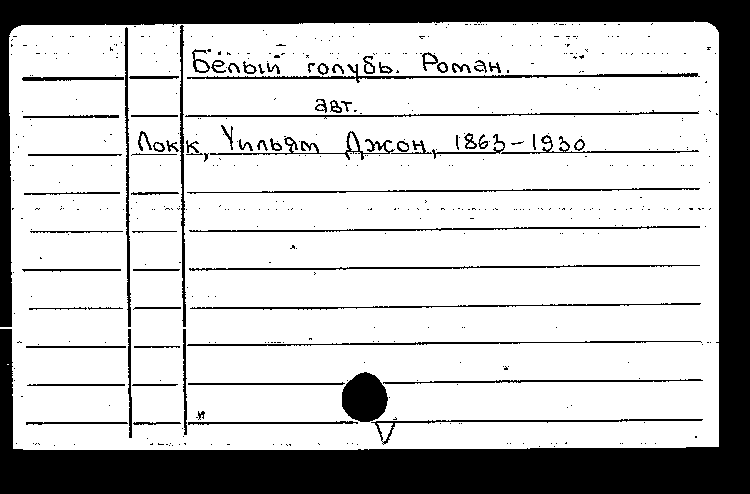 Белый голубь. Роман.
авт.
Локк, Уильям Джон, 1863-1930